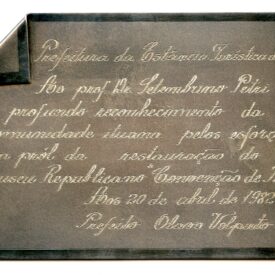 Prefeitura da Estância Turística d
Ao prof. Dr. Setembrino Petri
profundo reconhecimento da
omunidade ituana pelos esforç
m pról da restauração do
useu Republicano Convenção de
Aos 20 de abril de 1982
Prefeito Olavo Volpato